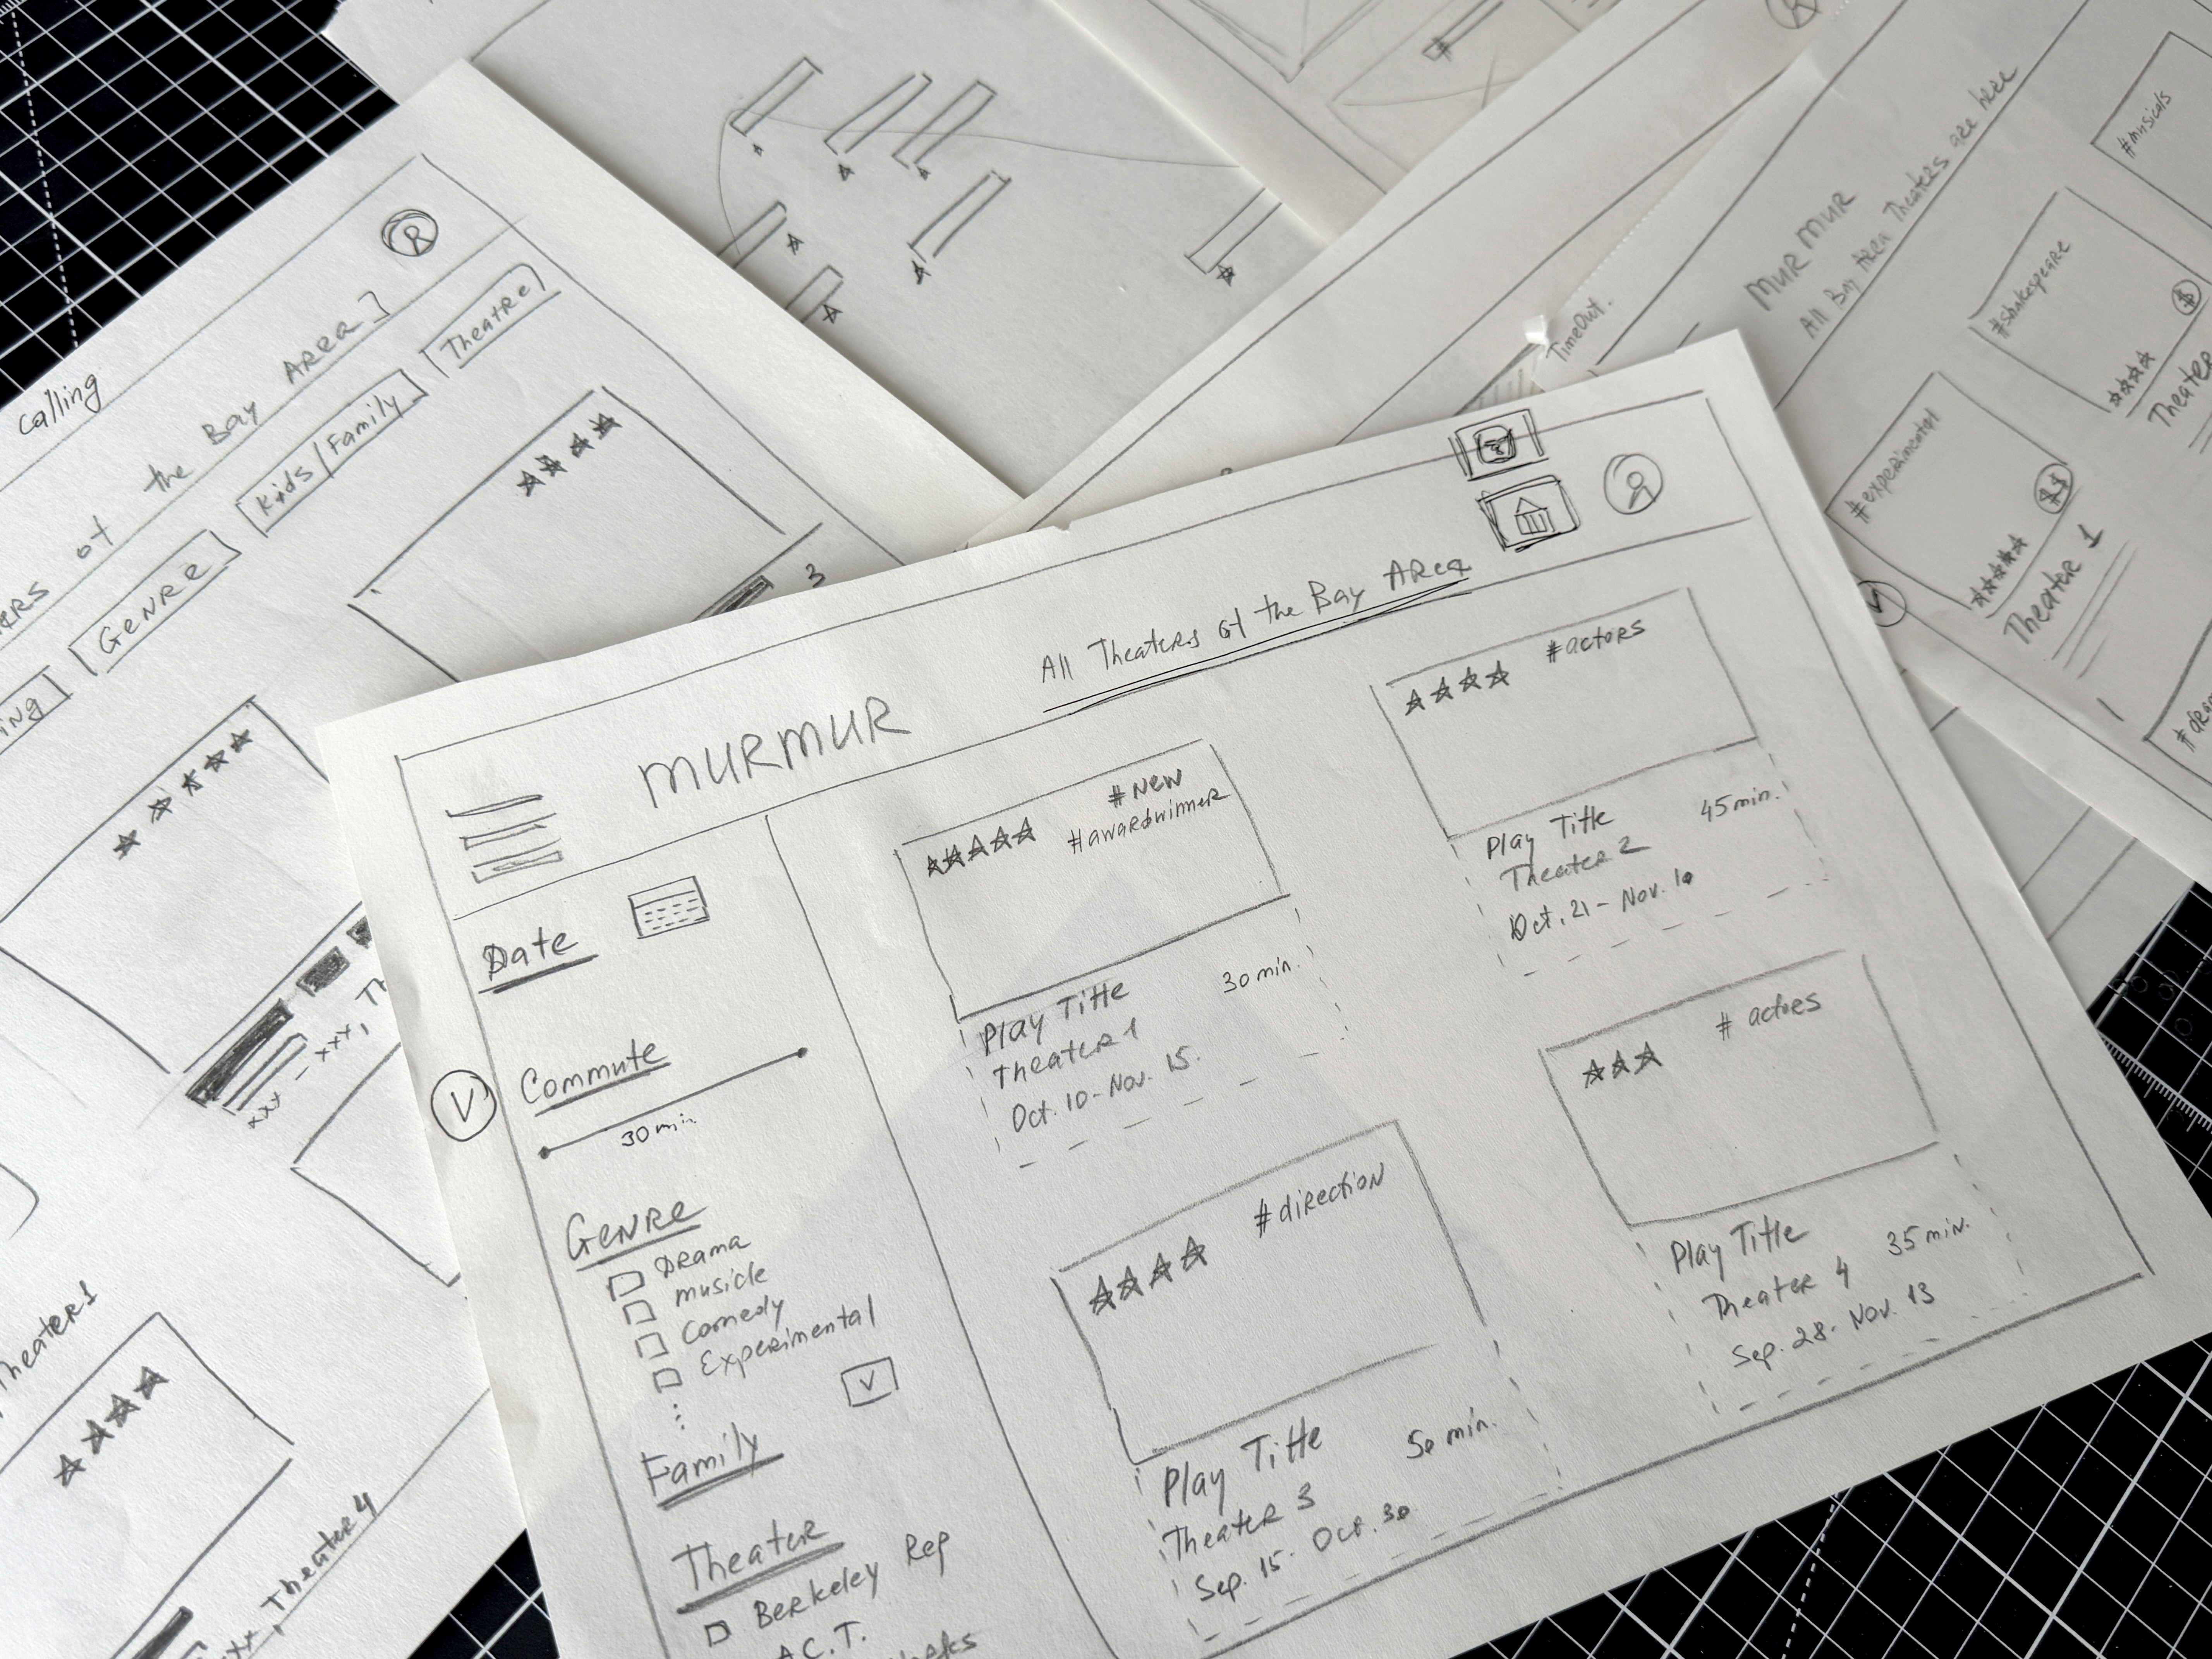 MURMUR
All Theaters of the Bay Area
Date
Commute
30 min
Genre
Drama
musicle
Comedy
Experimental
V
Family
Theater
Berkeley Rep
A.C.T.
V
#New
#awardwinner
Play Title
30 min.
Theater 1
Oct. 10 - Nov. 15.
#actors
Play Title
45 min.
Theater 2
Oct. 21 - Nov. 10
#direction
Play Title
50 min.
Theater 3
Sep. 15 - Oct. 30
# actors
Play Title
35 min.
Theater 4
Sep. 28 - Nov. 13
calling
of the Bay Area
R
Genre
Kids/Family
Theatre
3
xxx - xxx,
Theater 4
TimeOut.
MURMUR
All Bay Area Theaters are here
#musicals
#shakespeare
$
Theater
#experimental
$$
Theater 1
V